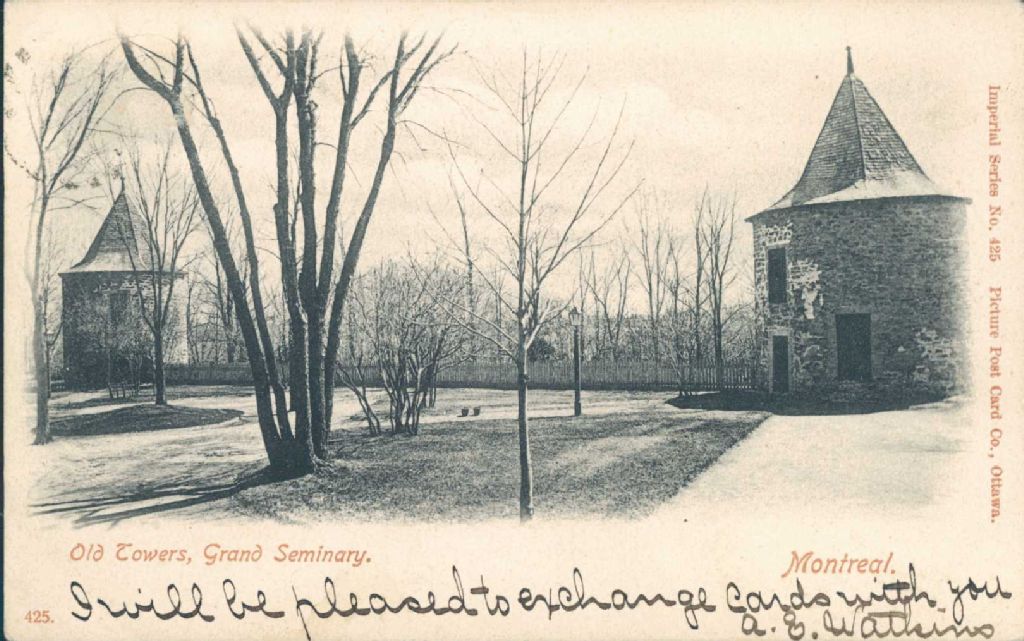 Imperial Series No. 425 Picture Post Card Co., Ottawa.
Old Towers, Grand Seminary.
Montreal.
425.
I will be pleased to exchange cards with you
A. E. Watkins